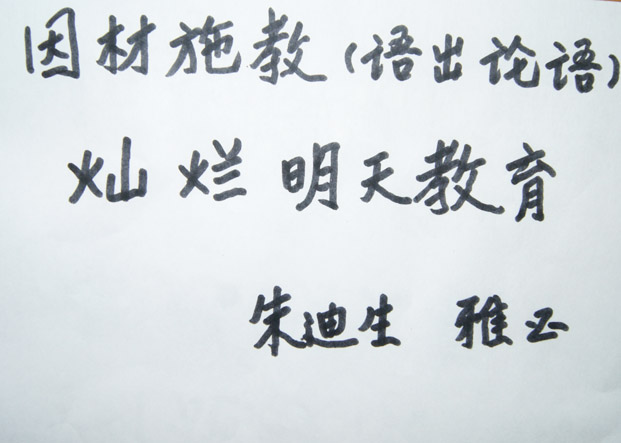 因材施教(语出论语)
灿烂明天教育
朱迪生 雅正